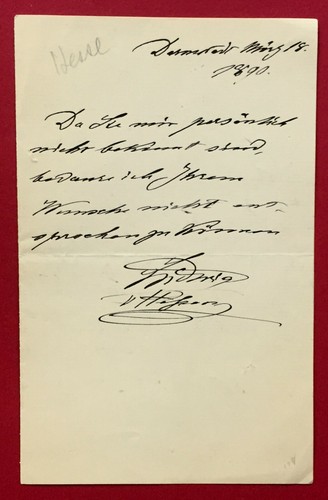 Hesse
Darmstadt März 18.
1890.
Da Sie mir persönlich
nicht bekannt sind,
bedaure ich Ihrem
Wunsche nicht ent-
sprechen zu können
Ludwig
v Hessen